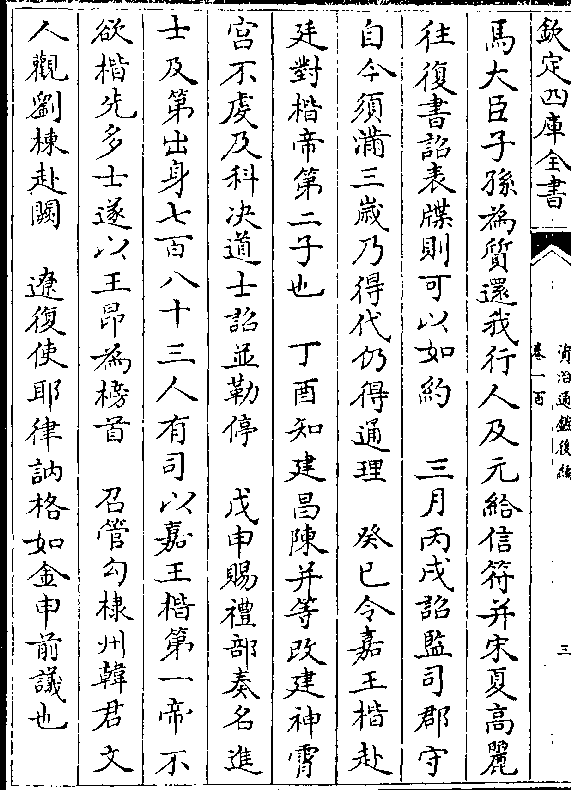 欽定四庫全書
資治通鑑後編
卷一百
三
馬大臣子孫為質還我行人及元給信符并宋夏高麗
往復書詔表牒則可以如約　三月丙戌詔監司郡守
自今須滿三歲乃得代仍得通理　癸巳令嘉王楷赴
廷對楷帝第二子也　丁酉知建昌陳并等改建神霄
宮不虔及科決道士詔並勒停　戊申賜禮部奏名進
士及第出身七百八十三人有司以嘉王楷第一帝不
欲楷先多士遂以王昂為榜首　召管勾棣州韓君文
人觀劉棟赴闕　遼復使耶律訥格如金申前議也